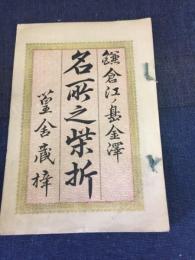 鎌倉江ノ島金澤
名所之栞折
篁舎蔵梓